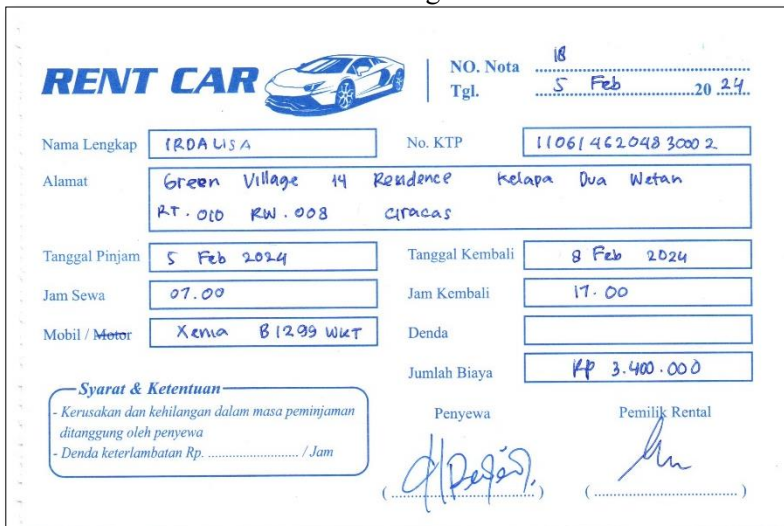 RENT CAR
NO. Nota 18
Tgl. 5 Feb 20 24
Nama Lengkap IRDALISA
No. KTP 1106146204830002
Alamat Green Village 14 Residence Kelapa Dua Wetan
RT. 010 RW. 008 Ciracas
Tanggal Pinjam 5 Feb 2024
Tanggal Kembali 8 Feb 2024
Jam Sewa 07.00
Jam Kembali 17.00
Mobil / Motor Xenia B 1299 WKT
Denda
Jumlah Biaya RP 3.400.000
Syarat & Ketentuan
- Kerusakan dan kehilangan dalam masa peminjaman
ditanggung oleh penyewa
- Denda keterlambatan Rp. .......................... / Jam
Penyewa
Pemilik Rental